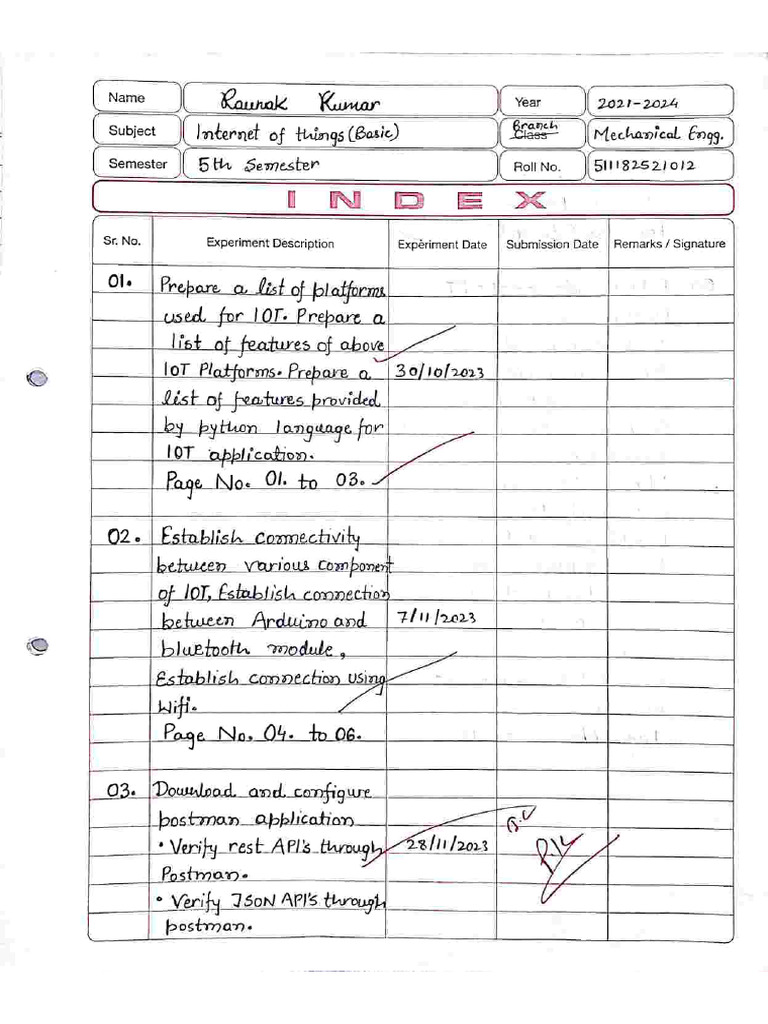 Name Raunak Kumar Year 2021-2024
Subject Internet of things (Basic) Branch Class Mechanical Engg.
Semester 5th Semester Roll No. 511182521012
INDEX
Sr. No. Experiment Description Experiment Date Submission Date Remarks / Signature
01. Prepare a list of platforms
used for IOT. Prepare a
list of features of above
IOT Platforms. Prepare a 30/10/2023
list of features provided
by python language for
IOT application.
Page No. 01. to 03.
02. Establish connectivity
between various component
of IOT, Establish connection
between Arduino and 7/11/2023
bluetooth module,
Establish connection using
Wifi.
Page No. 04. to 06.
03. Download and configure
postman application
• Verify rest API's through 28/11/2023
Postman.
• Verify JSON API's through
postman.